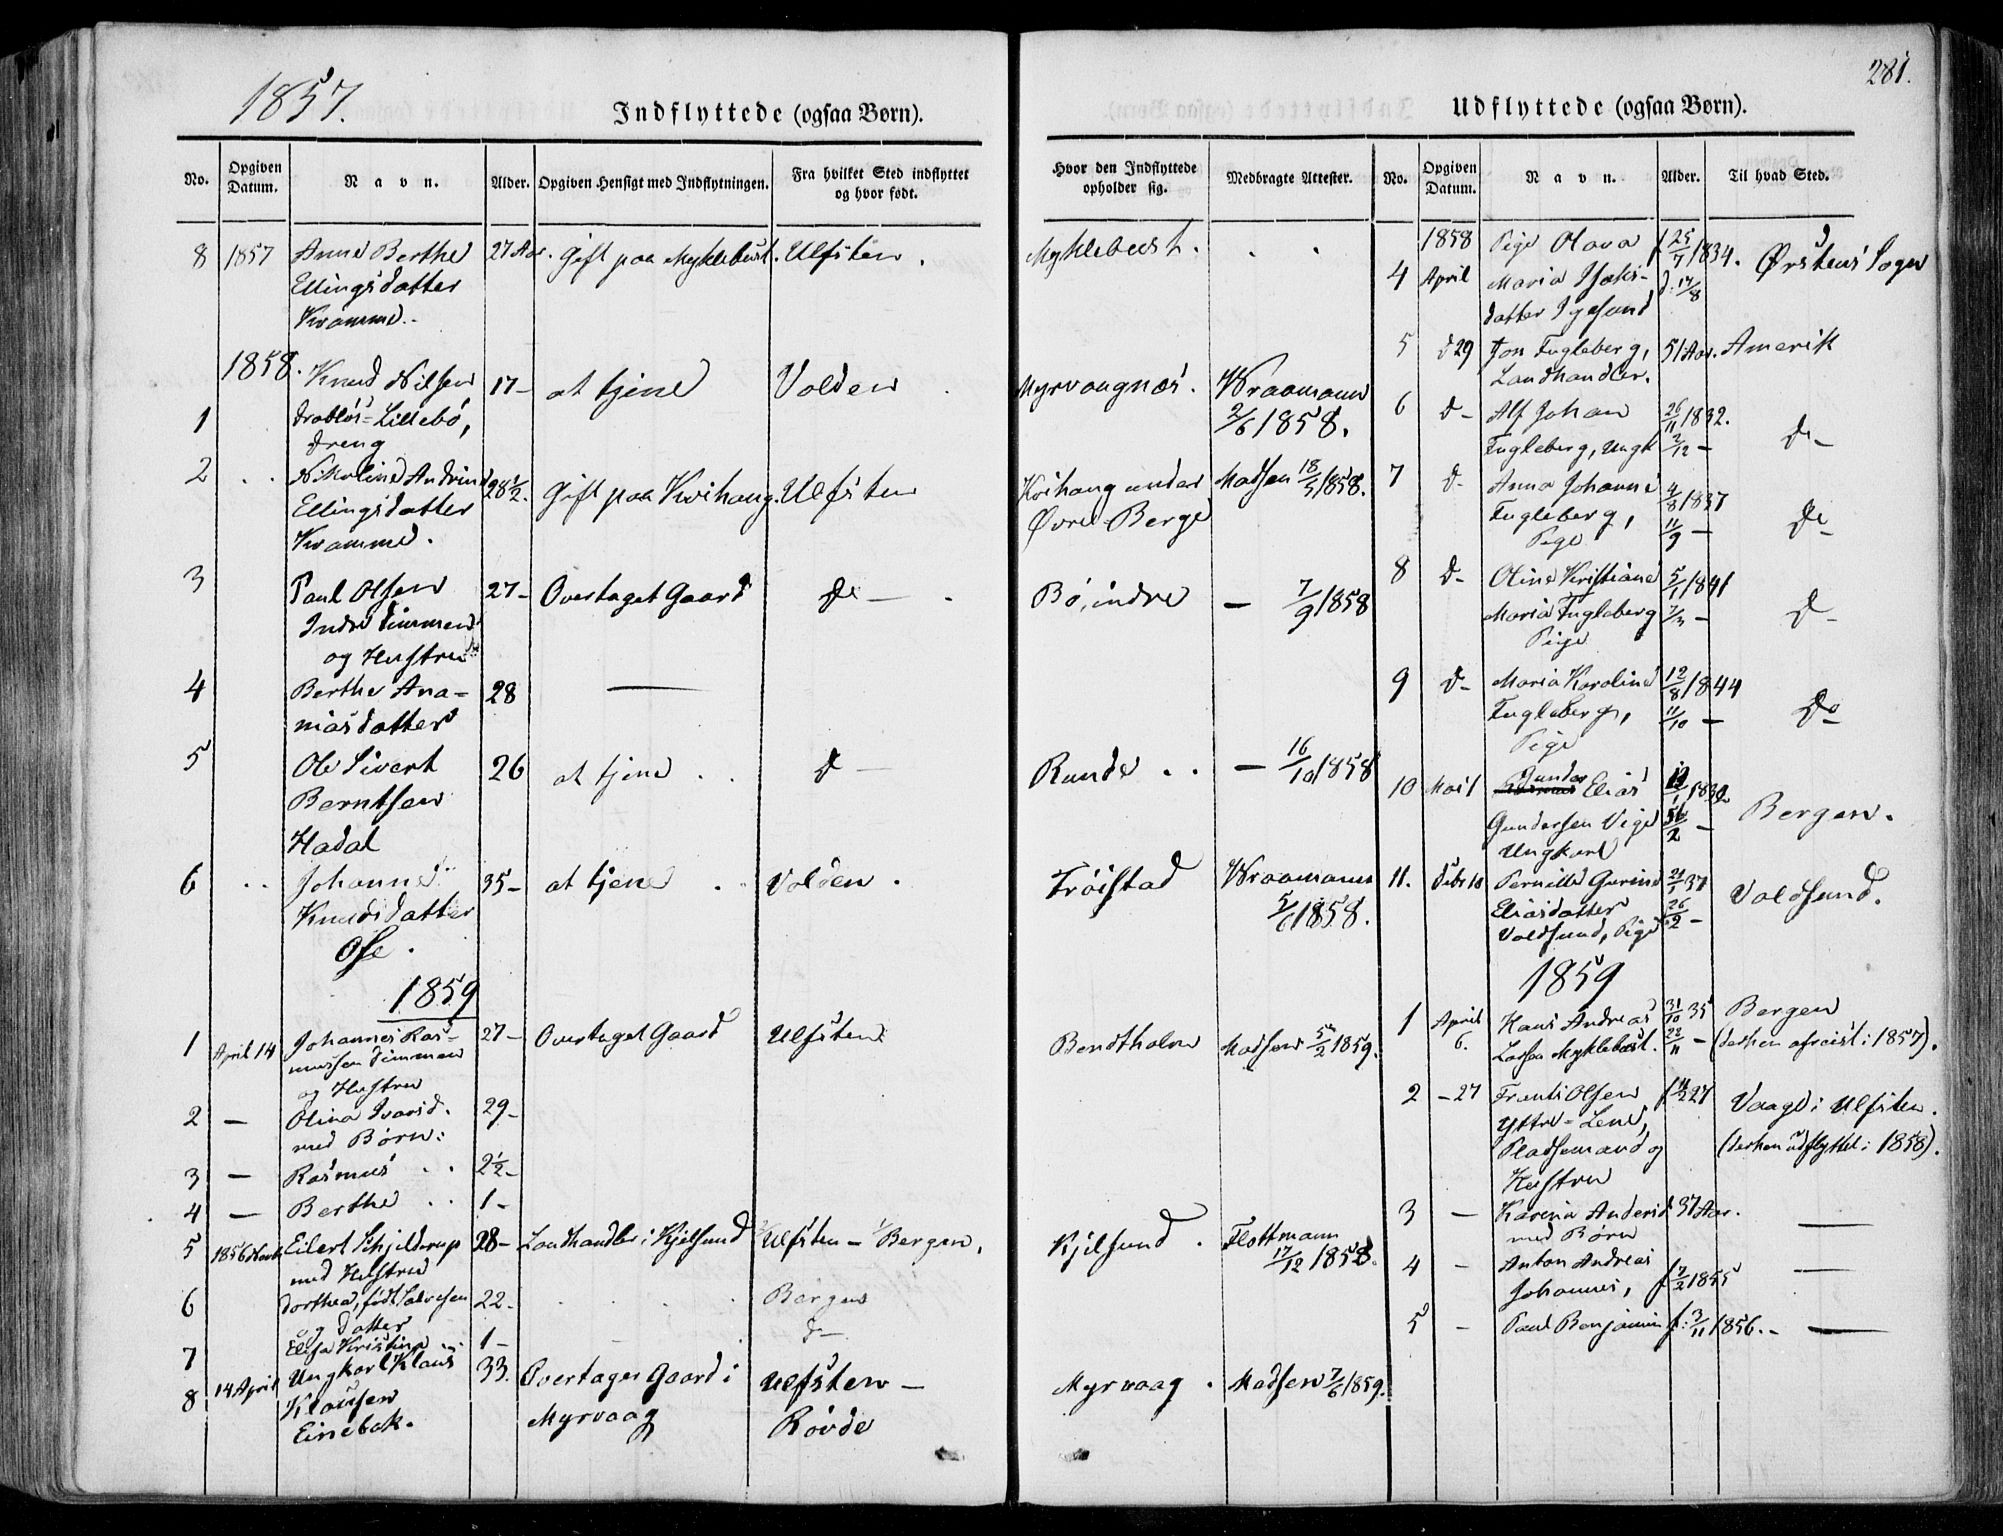 1857.
Indflyttede (ogsaa Børn).
No.
Opgiven Datum.
Navn.
Alder.
Opgiven Hensigt med Indflytningen.
Fra hvilket Sted indflyttet og hvor født.
8 1857 Anne Berthe 27 Aar. Gift paa Myklebust. Ulfsten.
Ellingsdatter
Kramme.
1858.
Knud Nilsen 17- at tjene Volden
1 Drabløs-Lillebø,
Dreng
2 Nikoline Andrine 28½. Gift paa Kvihaug. Ulfsten
Ellingsdatter
Kramme.
3 Paul Olsen 27- Overtaget Gaard De-
Indre Dimmen
og Hustru
4 Berthe Ana- 28 —
niasdatter
5 Ole Sivert 26 at tjene D-
Berntsen
Hadal
6 Johanne 35- at tjene Volden.
Knudsdatter
Ose.
1859
1 April 14 Johannes Ras- 27- Overtaget Gaard Ulfsten
mussen Dimmen
og Hustru
2 — Olina Ivarsd. 29-
med Børn:
3 — Rasmus 2½-
4 — Berthe 1-
5 1856 Eilert Schjelderup 28- Landhandler i Kjelsund Ulfsten - Bergen.
med Hustru
6 Dorthea, født Salvesen 22- Bergen
og Datter
7 Elisa Kristina 1- d-
8 14 April Ungkarl Klaus 33. Overtager Gaard i Ulfsten -
Klausen Myrvaag Røvde
Einebak.
281.
Udflyttede (ogsaa Børn).
Hvor den Indflyttede opholder sig.
Medbragte Attester.
No.
Opgiven Datum.
Navn.
Alder.
Til hvad Sted.
Myklebust.
Myrvaagnæs. Wraamann
2/6 1858.
Kvihaug under Madsen 18/5 1858.
Øvre-Berge
Bø, indre - 7/9 1858
Runde - 16/10 1858
Trøistad Wraamann
5/6 1858.
Bendtholm Madsen 5/2 1859.
Kjelsund. Flottmann
17/12 1858.
Myrvaag. Madsen 7/6 1859.
1858 Pige Olava f 25/7 1834. Ørstens Sogn
4 April Maria Isaks- d: 17/8
datter Igesund
5 d 29 Jon Fugleberg, 51 Aar. Amerik
Landhandler.
6 d- Alf Johan 26/11 1832. De-
Fugleberg, Ungk 2/12 -
7 d- Anna Johanne 4/8 1837 De-
Fugleberg, 11/9 -
Pige
8 d- Oline Kristiane 5/1 1841 D-
Maria Fugleberg 7/3 -
Pige
9 d- Maria Karoline 12/8 1844 Do
Fugleberg, 11/10 -
Pige
10 Mai 1 Gunder Elias Bergen.
Gundersen Vige
Ungkarl
11. Febr 18 Pernille Gurine 21/1 37 Voldsund.
Eliasdatter 26/2 -
Voldsund, Pige
1859
1 April 6. Hans Andreas 31/10 35 Bergen
Larsen Myklebust. 22/11 - (derhen afreist i 1857).
2 - 27 Frants Olsen f 27 Vaage i Ulfsten.
Yttre-Lene, (derhen udflyttet i 1858).
Pladsemand og
Hustru
3 - Karina Andersd 37 Aar. —
med Børn
4 - Anton Andreas
Johannes, f 7/2 1855 —
5 - Paul Benjamin f: 3/11 1856. —